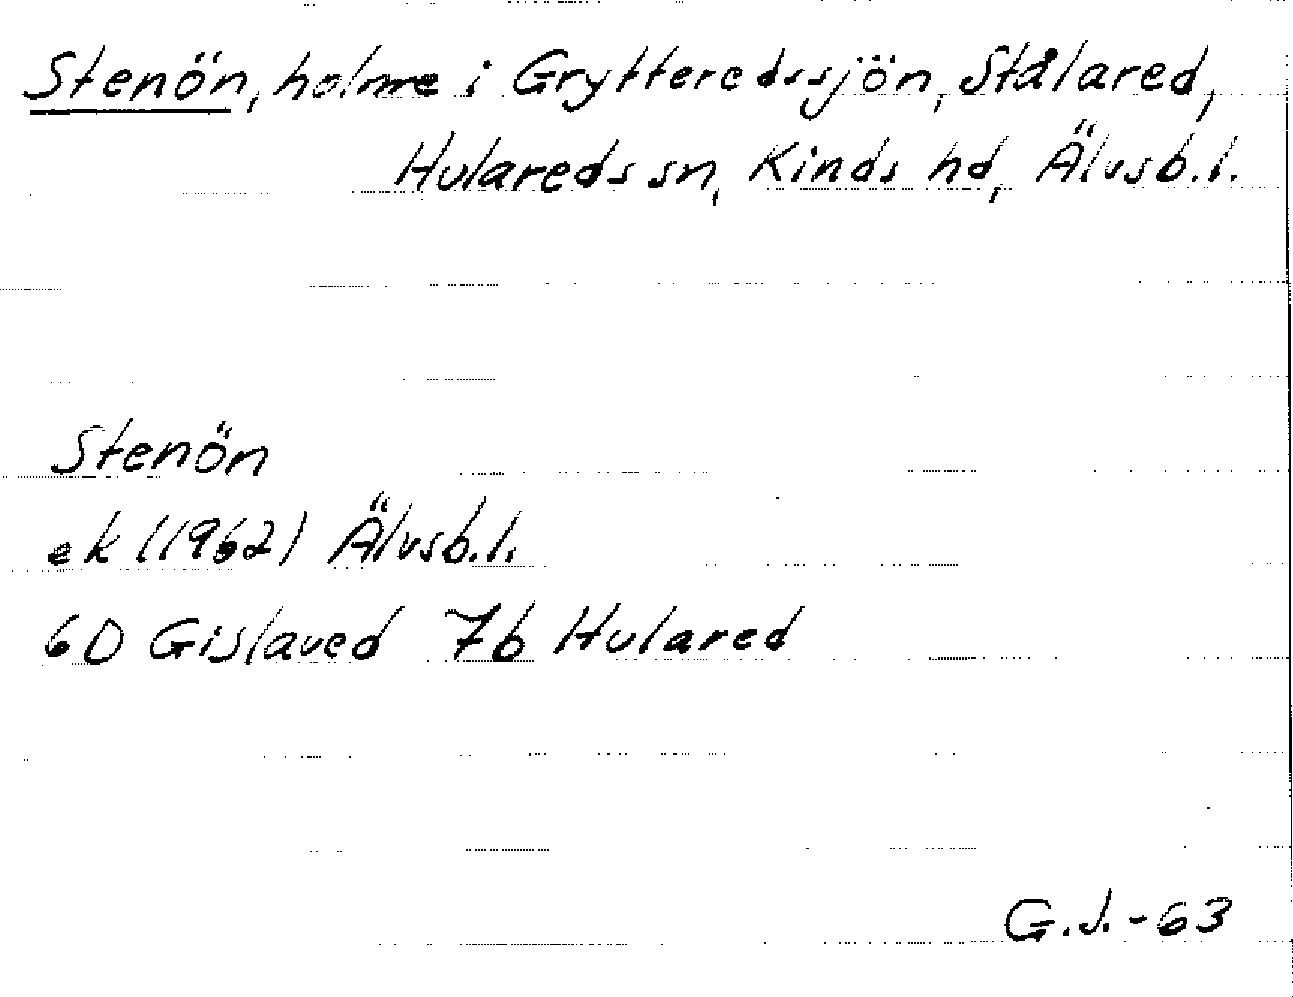 Stenön, holme i Grytteredssjön, Stålared,
Hulareds sn, Kinds hd, Älvsb. l.
Stenön
ek (1962) Älvsb. l.
6D Gislaved 7b Hulared
G.J.-63